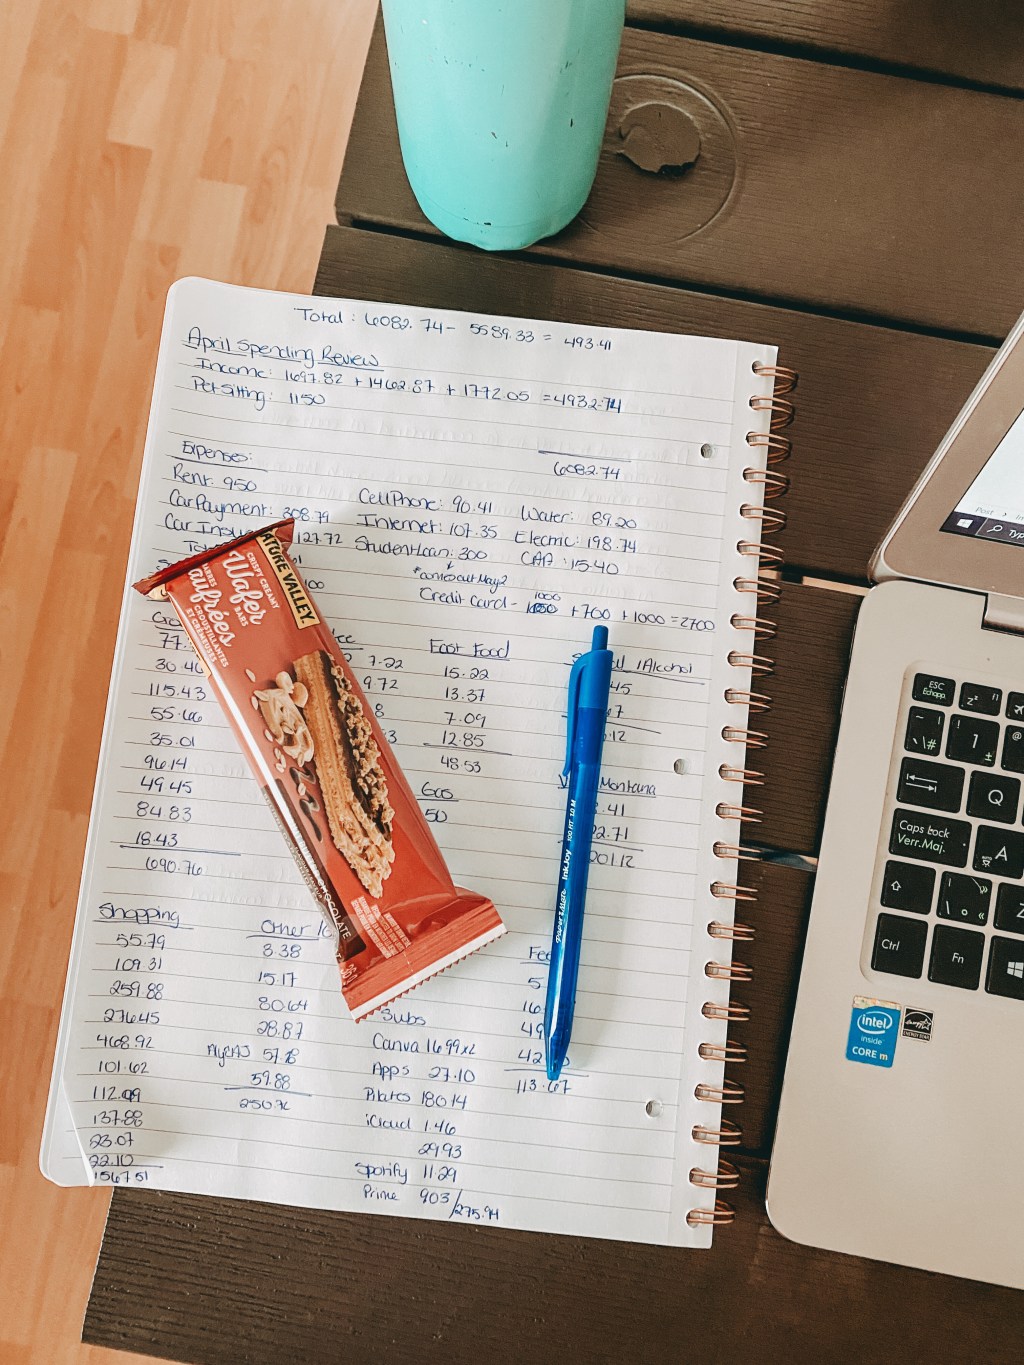 Total : 6082.74 - 5589.33 = 493.41
April Spending Review
Income: 1697.82 + 1462.87 + 1772.05 = 4932.74
Pet Sitting: 1150
6082.74
Expenses:
Rent: 950
Car Payment: 308.79
Car Insu 127.72
Cell Phone: 90.41
Internet: 107.35
Student Loan: 300
*comes out May 2
Water: 89.20
Electric: 198.74
CAA: 15.40
Credit Card - 1000 + 700 + 1000 = 2700
77.
30.40
115.43
55.66
35.01
96.14
49.45
84.83
18.43
690.76
7.22
9.72
Fast Food
15.22
13.37
7.09
12.85
48.53
Gas
50
/Alcohol
.45
.12
Montana
.41
.71
201.12
Shopping
55.79
109.31
259.88
276.45
468.92
101.62
112.09
137.88
23.07
22.10
1567.51
Other
3.38
15.17
80.64
28.87
57.78
59.88
250.72
Subs
Canva 16.99x2
Apps 27.10
Pilates 180.14
iCloud 1.46
29.93
Spotify 11.29
Prime 9.03 / 275.94
Fee
5.
16.
49
42.
113.67
NATURE VALLEY
CRISPY CREAMY
Wafer
BARS
BARRES
Gaufrées
CROUSTILLANTES
ET CRÉMEUSES
CHOCOLATE
Paper Mate InkJoy 100 RT 1.0 M
Post
Typ
ESC
Échapp.
1
±
Q
Caps Lock
Verr.Maj.
A
Z
Ctrl
Fn
intel
inside
CORE m
ENERGY STAR